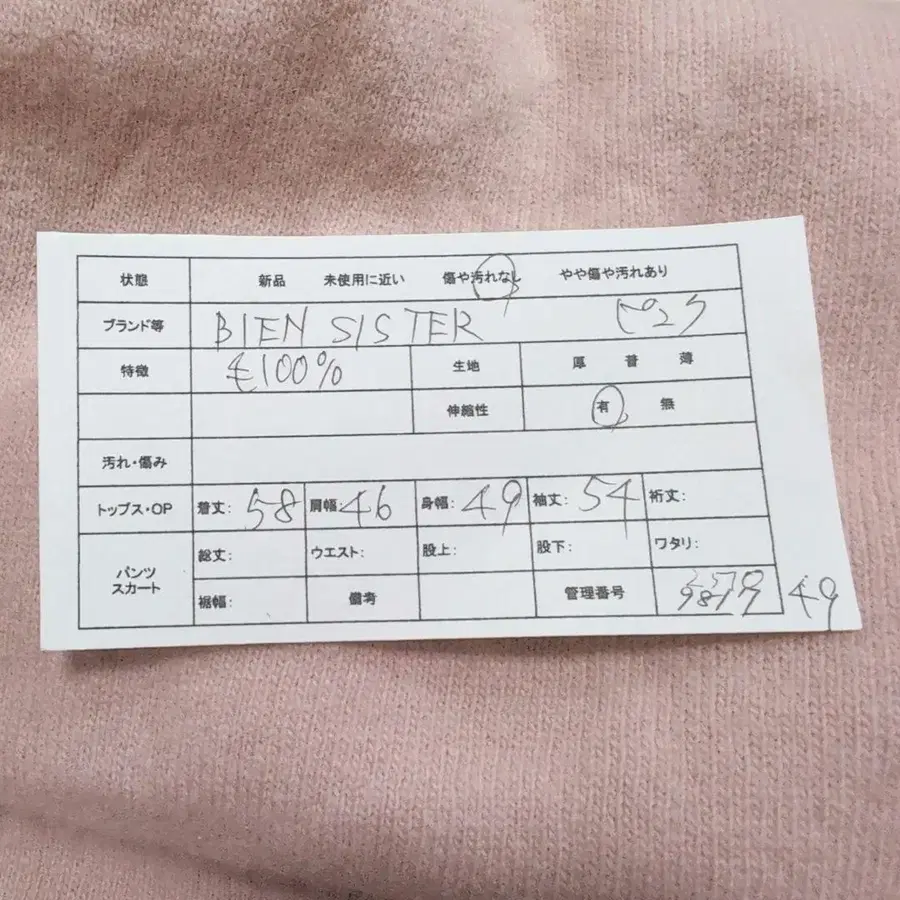 状態 新品 未使用に近い 傷や汚れなし やや傷や汚れあり
ブランド等 BIEN SISTER ピンク
特徴 毛100% 生地 厚 普 薄
伸縮性 有 無
汚れ・傷み
トップス・OP 着丈: 58 肩幅: 46 身幅: 49 袖丈: 54 裄丈:
パンツ スカート 総丈: ウエスト: 股上: 股下: ワタリ:
裾幅: 備考 管理番号 49